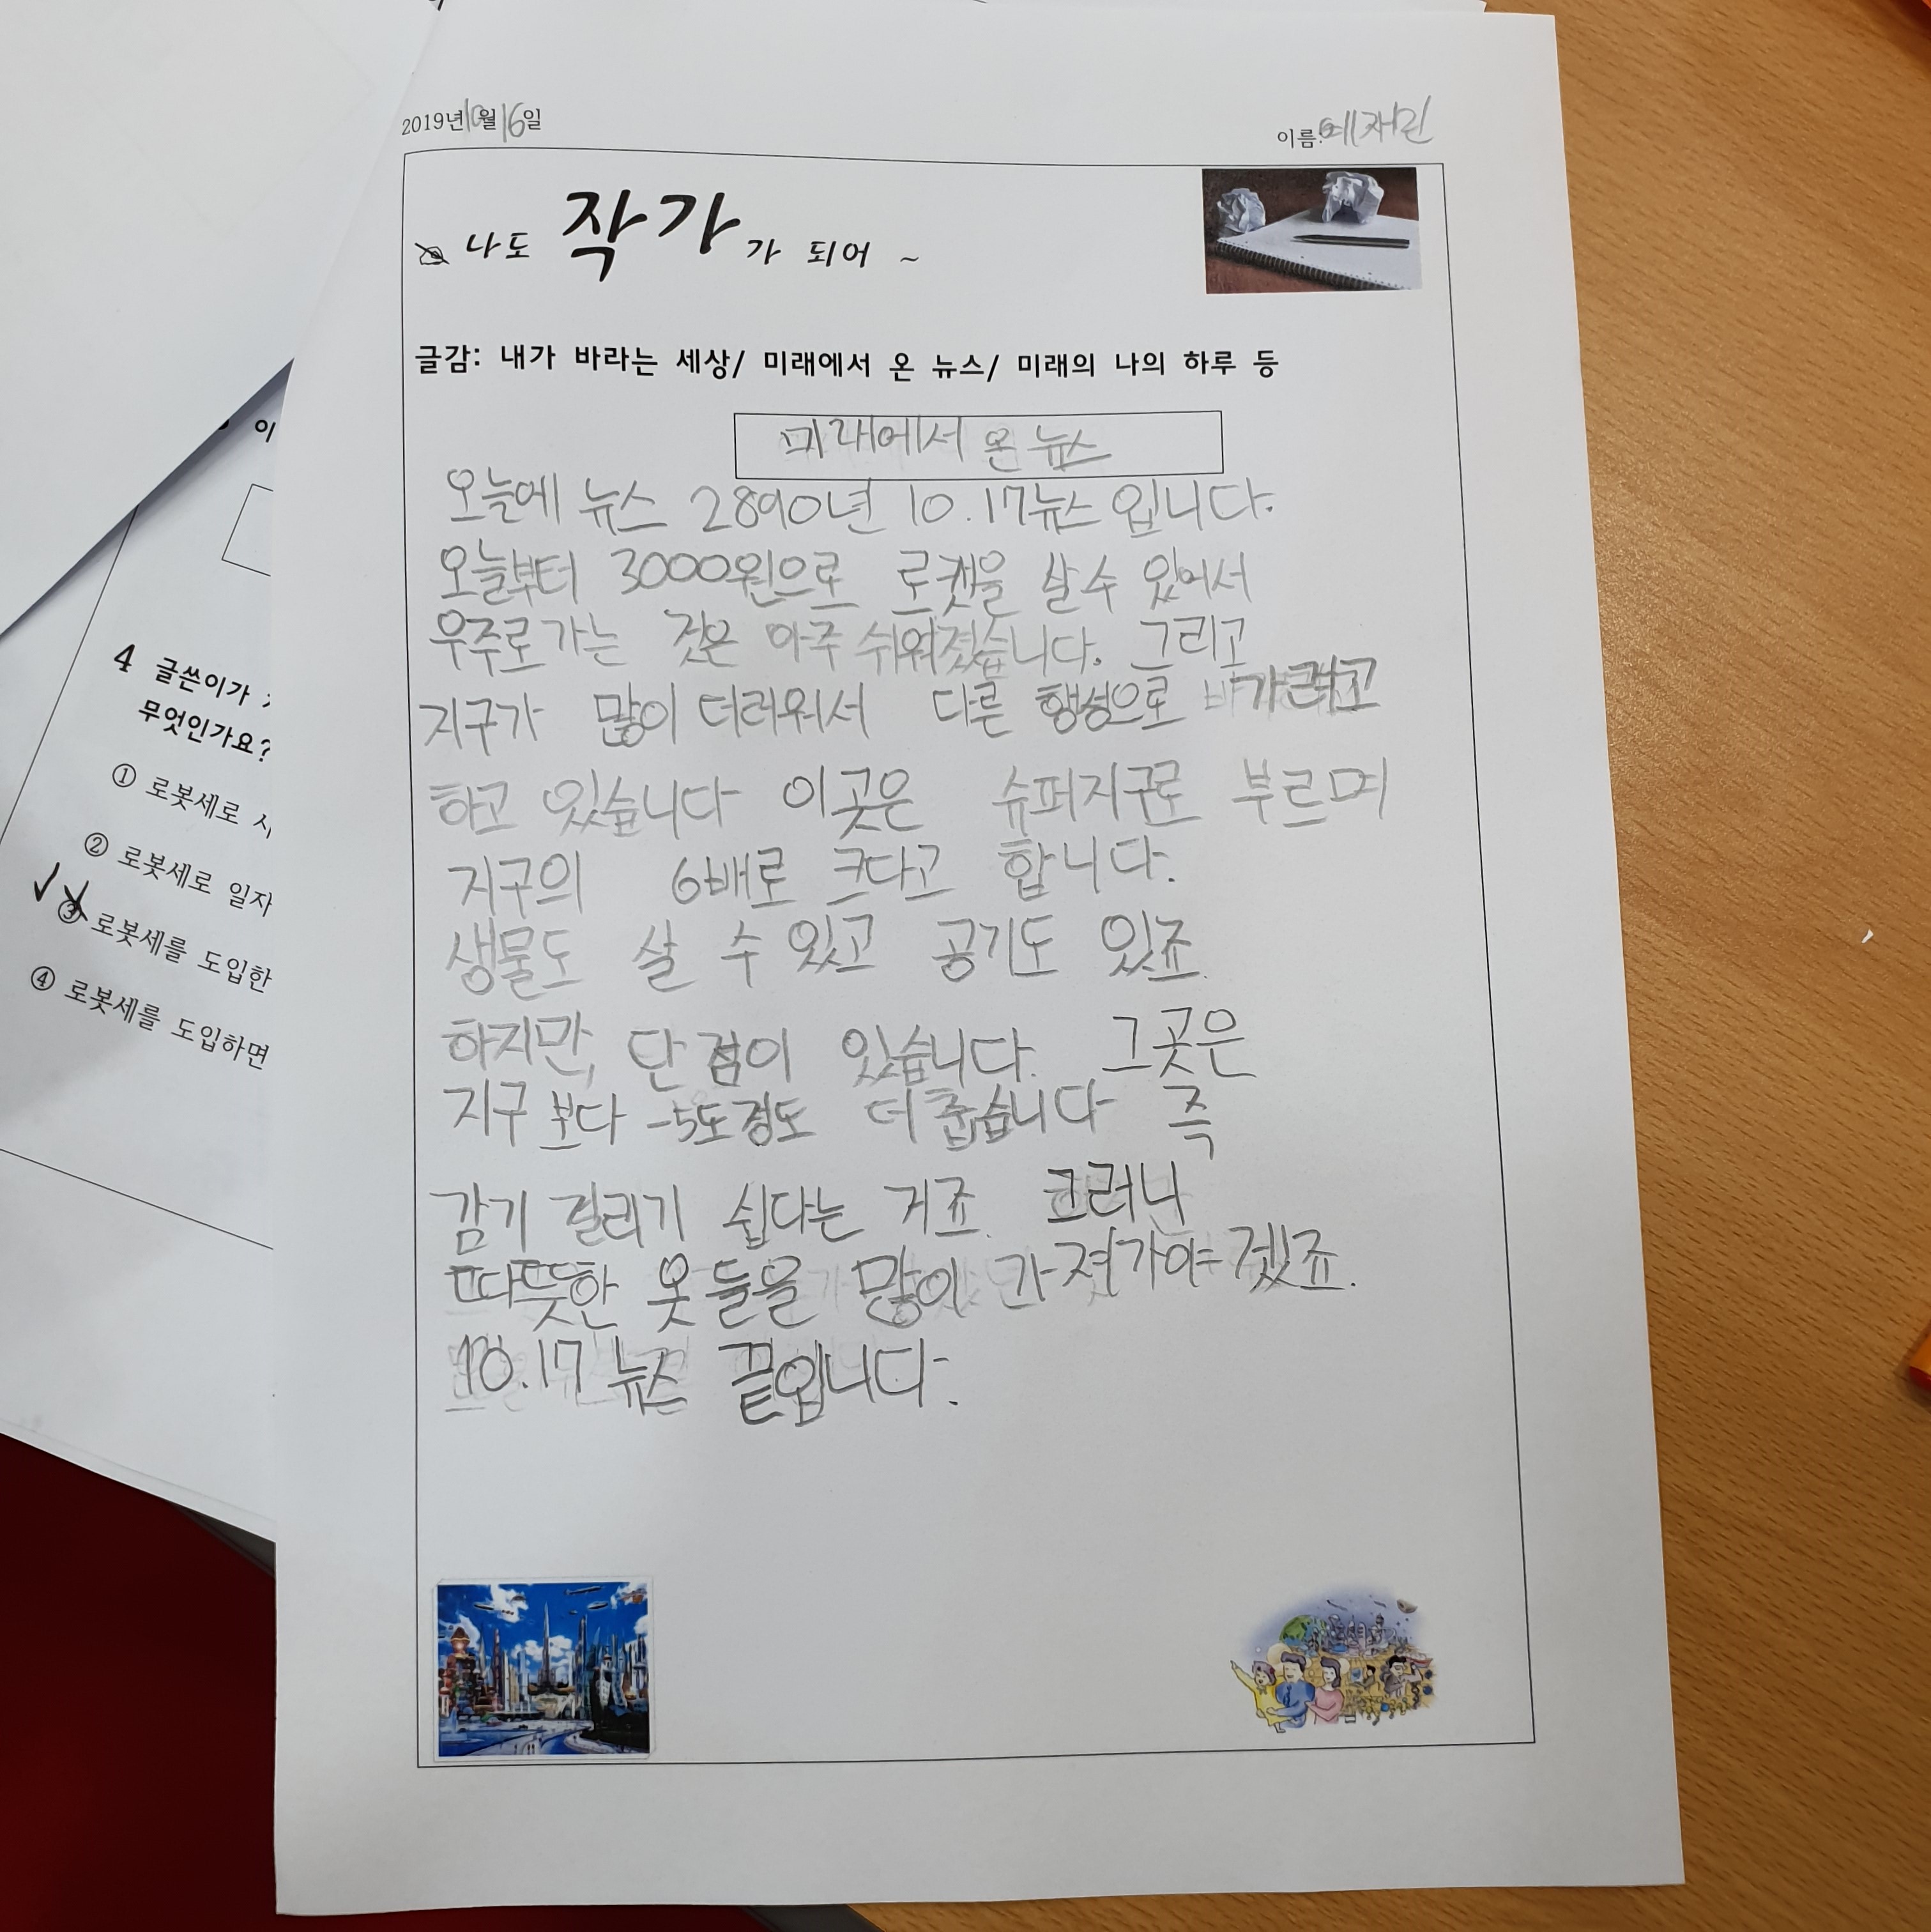 2019년 10월 16일
이름: 예채린
나도 작가가 되어 ~
글감: 내가 바라는 세상/ 미래에서 온 뉴스/ 미래의 나의 하루 등
미래에서 온 뉴스
오늘에 뉴스 2890년 10.17뉴스 입니다.
오늘부터 3000원으로 로켓을 살 수 있어서
우주로 가는 것은 아주 쉬워졌습니다. 그리고
지구가 많이 더러워서 다른 행성으로 가려고
하고 있습니다 이곳은 슈퍼지구로 부르며
지구의 6배로 크다고 합니다.
생물도 살 수 있고 공기도 있죠.
하지만, 단점이 있습니다. 그곳은
지구 보다 -5도정도 더 춥습니다 즉
감기 걸리기 쉽다는 거죠. 그러니
따뜻한 옷들을 많이 가져가야 겠죠.
10.17 뉴스 끝입니다.
이
4 글쓴이가
무엇인가요?
① 로봇세로
② 로봇세로 일자
③ 로봇세를 도입한
④ 로봇세를 도입하면